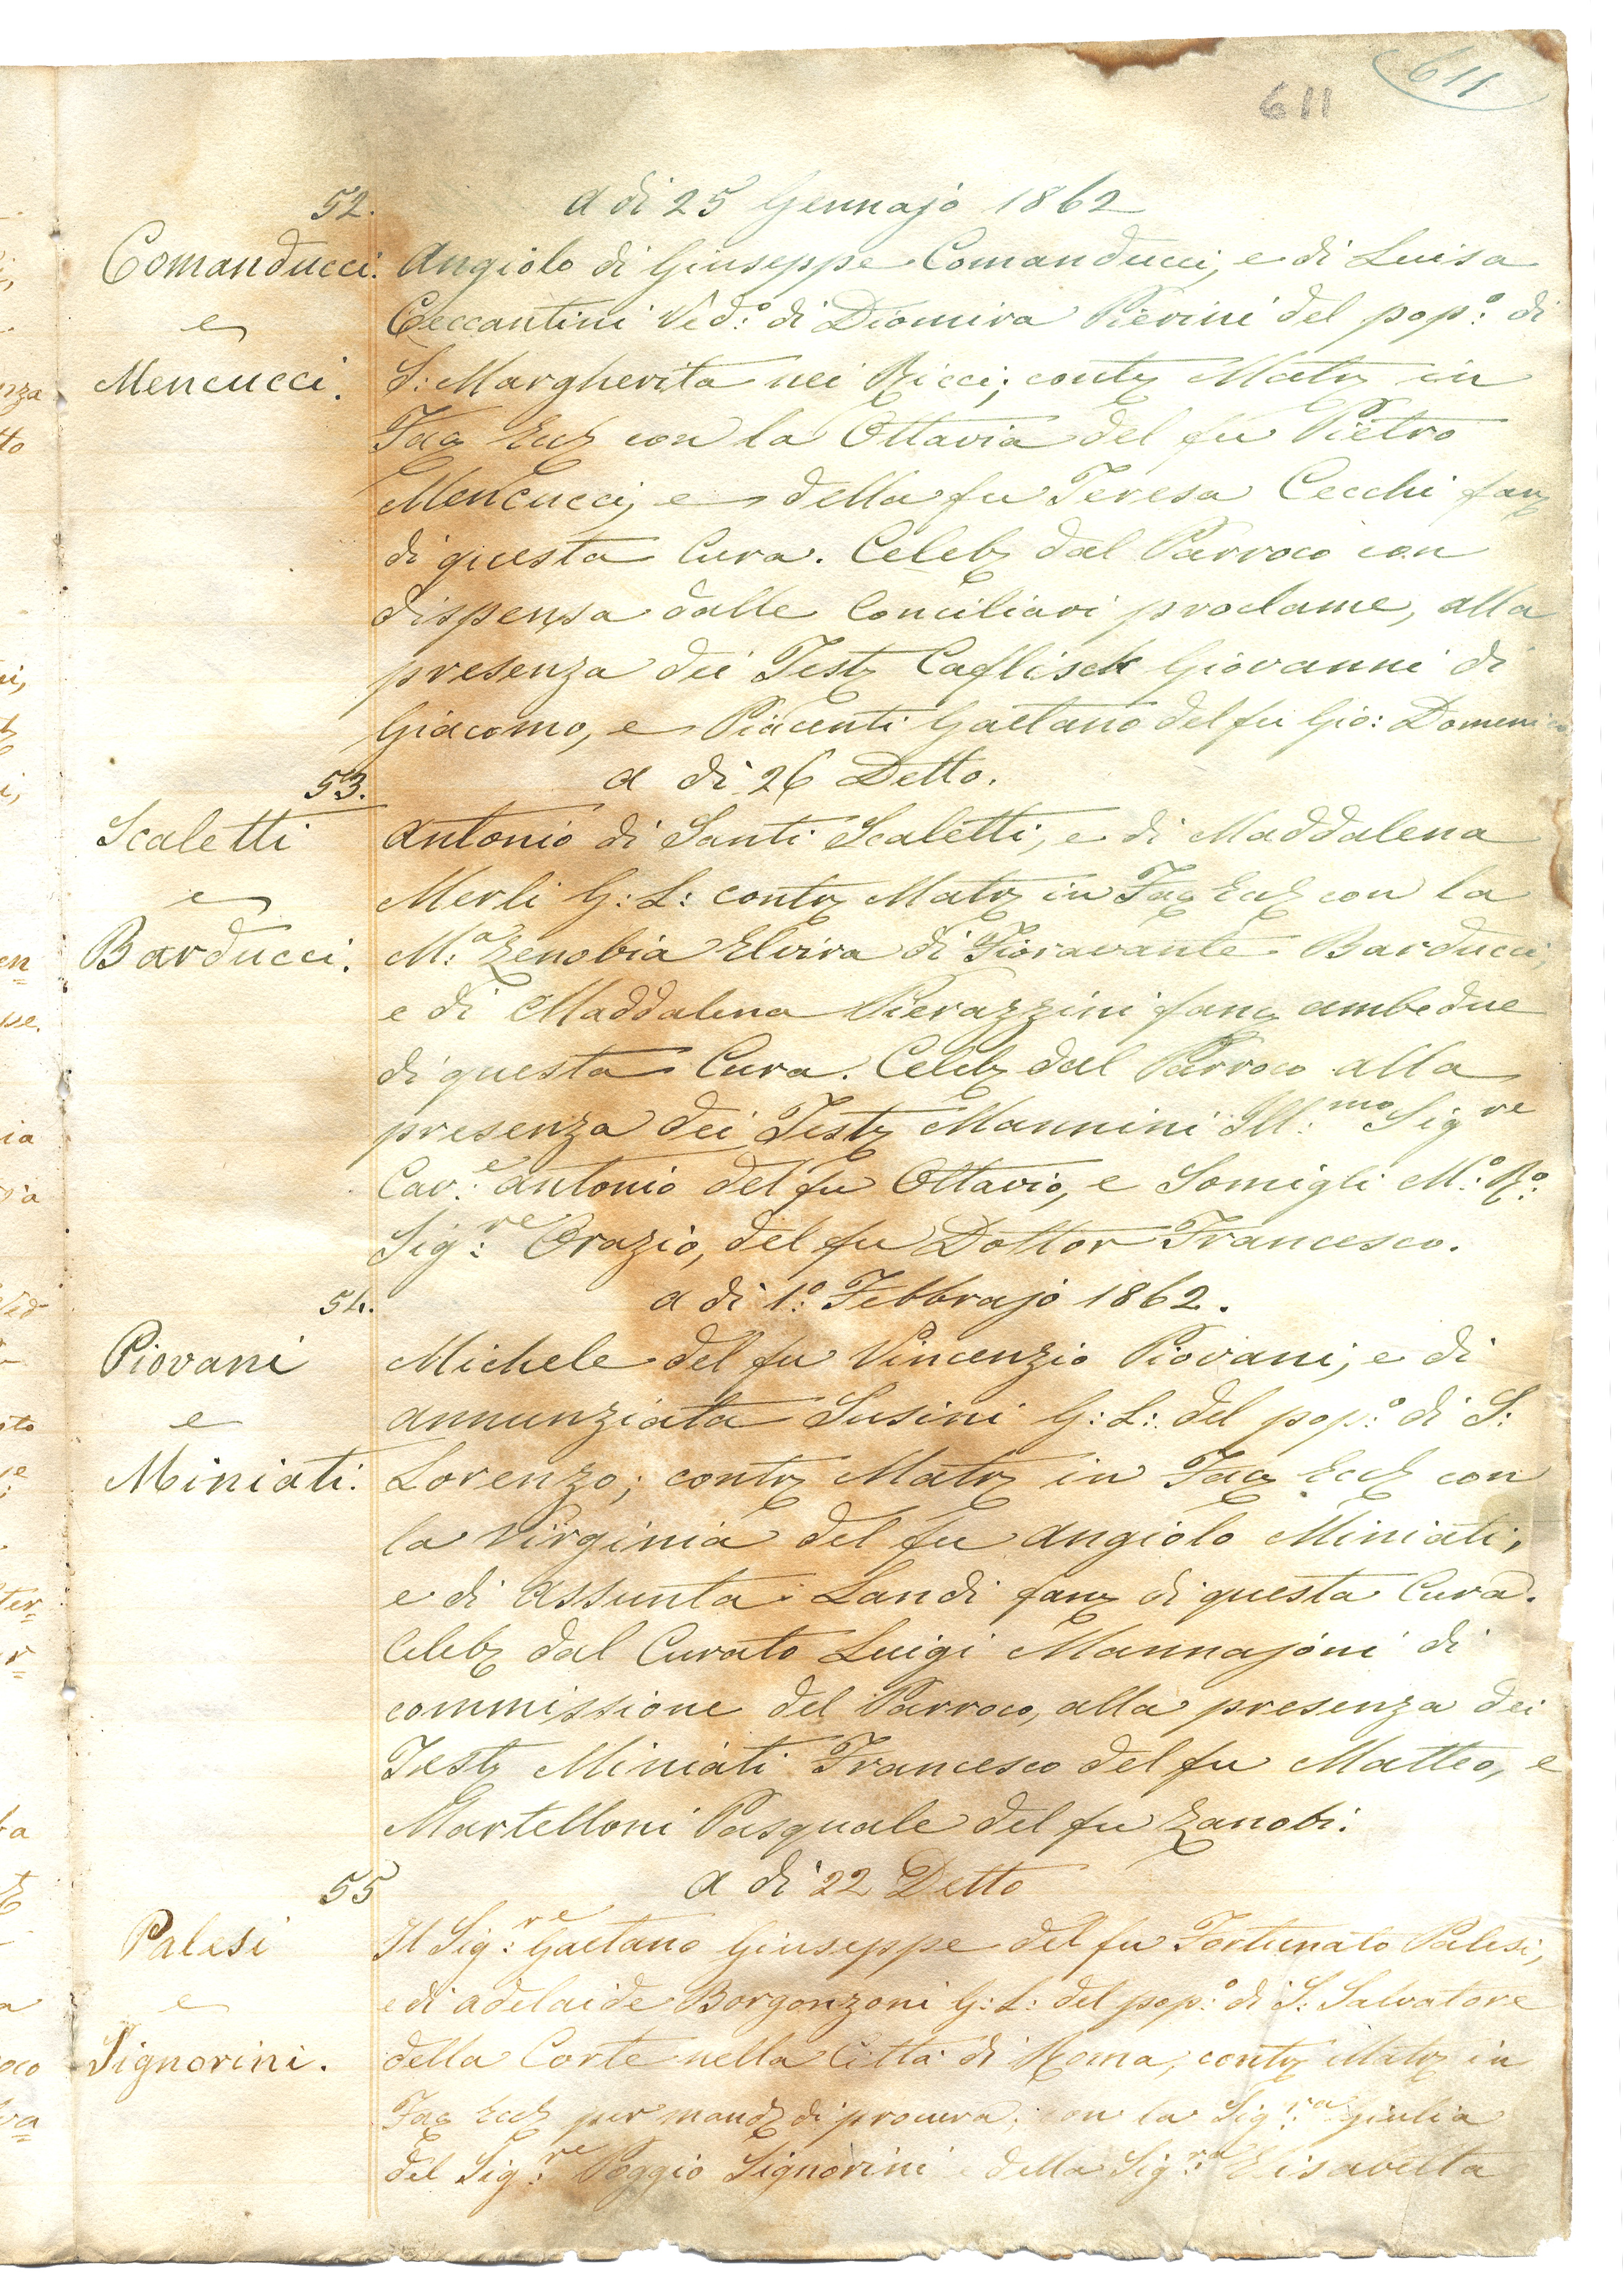 611
611
52.
a di 25 Gennajo 1862
Comanducci
e
Mencucci.
Angiolo di Giuseppe Comanducci, e di Luisa
Ceccantini Ved:º di Diomira Pierini del pop:º di
S: Margherita nei Ricci; contz Matrz in
Facz Eccz con la Ottavia del fu Pietro
Mencucci, e della fu Teresa Cecchi fanz
di questa Cura. Celebz dal Parroco con
dispensa dalle Conciliari proclame, alla
presenza dei Testz Caflisch Giovanni di
Giacomo, e Piacenti Gaetano del fu Gio: Domenico
53.
a di 26 Detto.
Scaletti
e
Barducci.
Antonio di Santi Scaletti, e di Maddalena
Merli G: L: contz Matrz in Facz Eccz con la
M:ª Zenobia Elvira di Fioravante Barducci,
e di Maddalena Pierazzini fanz ambedue
di questa Cura. Celebz dal Parroco alla
presenza dei Testz Mannini Ill:mo Sigre
Cav:e Antonio del fu Ottavio, e Somigli M:º R:º
Sig:re Orazio, del fu Dottor Francesco.
54.
a di 1:º Febbrajo 1862.
Piovani
e
Miniati.
Michele del fu Vincenzio Piovani, e di
Annunziata Susini G: L: del pop:º di S:
Lorenzo; contz Matrz in Facz Eccz con
la Virginia del fu Angiolo Miniati,
e di Assunta Landi fanz di questa Cura.
Celebz dal Curato Luigi Mannajoni di
commissione del Parroco, alla presenza dei
Testz Miniati Francesco del fu Matteo, e
Martelloni Pasquale del fu Zanobi.
55
a di 22 Detto
Palesi
e
Signorini.
Il Sig:re Gaetano Giuseppe del fu Fortunato Palesi,
e di Adelaide Borgonzoni G: L: del pop:º di S: Salvatore
della Corte nella Città di Roma, contz Matrz in
Facz Eccz per mandz di procura, con la Sig:ra Giulia
del Sig:re Poggio Signorini e della Sig:ra Elisabetta